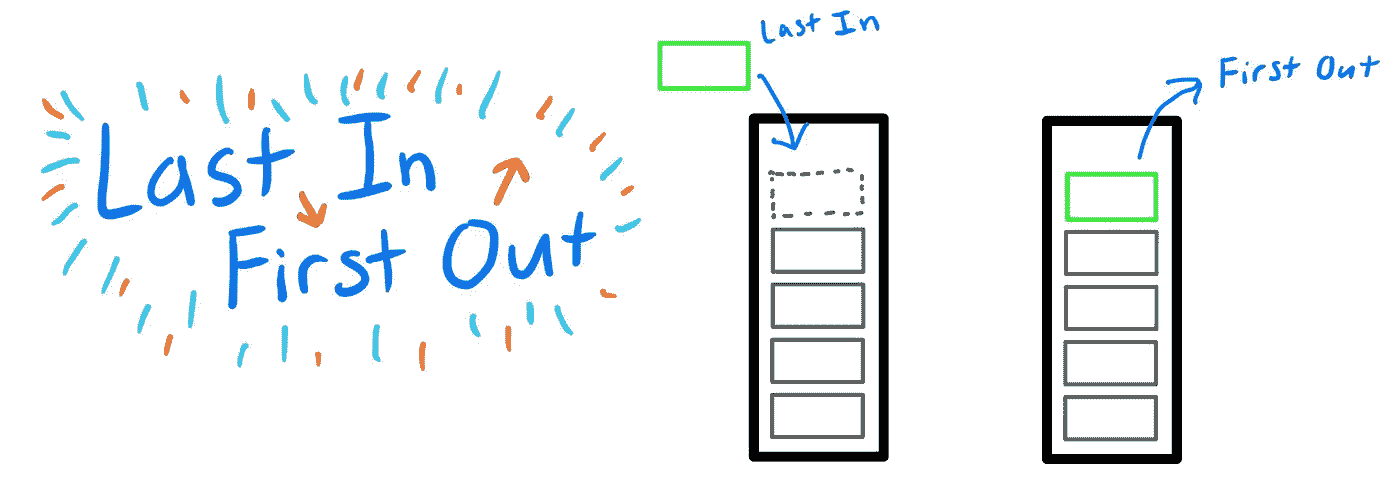 Last In
First Out
Last In
First Out